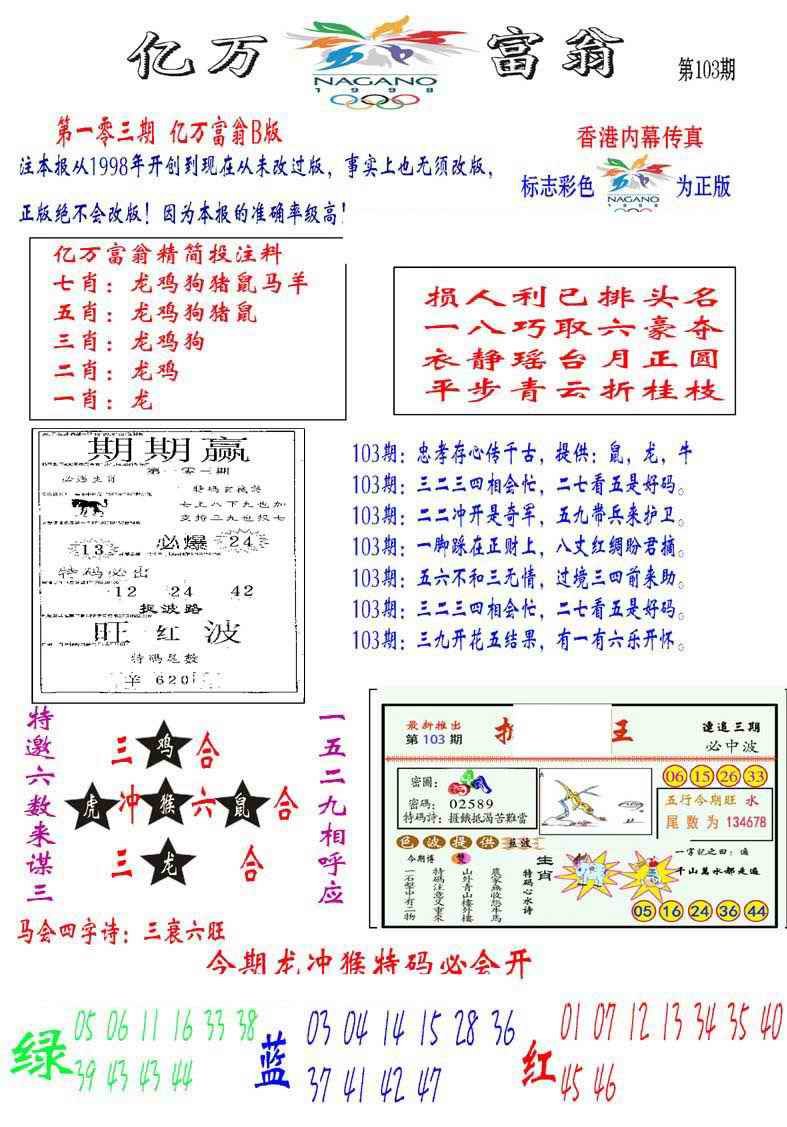 亿万富翁
NAGANO
1998
第103期
第一零三期 亿万富翁B版
注本报从1998年开创到现在从未改过版，事实上也无须改版，
正版绝不会改版！因为本报的准确率级高！
香港内幕传真
标志彩色
NAGANO
1998
为正版
亿万富翁精简投注料
七肖：龙鸡狗猪鼠马羊
五肖：龙鸡狗猪鼠
三肖：龙鸡狗
二肖：龙鸡
一肖：龙
损人利已排头名
一八巧取六豪夺
衣静瑶台月正圆
平步青云折桂枝
期期赢
第一零三期
必选生肖
特码玄机诗
七上八下九也加
支持二九也投七
13
必爆
24
特码必出
12 24 42
捉波路
旺红波
特码尾数
羊 620
103期：忠孝存心传千古，提供：鼠，龙，牛
103期：三二三四相会忙，二七看五是好码。
103期：二二冲开是奇军，五九带兵来护卫。
103期：一脚踩在正财上，八丈红绸盼君摘。
103期：五六不和三无情，过境三四前来助。
103期：三二三四相会忙，二七看五是好码。
103期：三九开花五结果，有一有六乐开怀。
特邀六数来谋三
三鸡合
虎冲猴六鼠合
三龙合
一五二九相呼应
马会四字诗：三衰六旺
最新推出
第103期
王
连追三期
必中波
密圖：
密碼：02589
特碼詩：摄餓抵渴苦難當
06 15 26 33
五行今期旺 水
尾数为 134678
色波提供 蓝波
今期博 雙
一石壂中有二物
特碼注意又重來
山外青山樓外樓
農家無收怨牛馬
特码心水诗
生肖
一字記之曰：遍
千山萬水都走遍
05 16 24 36 44
今期龙冲猴特码必会开
绿
05 06 11 16 33 38
39 43 43 44
蓝
03 04 14 15 28 36
37 41 42 47
红
01 07 12 13 34 35 40
45 46